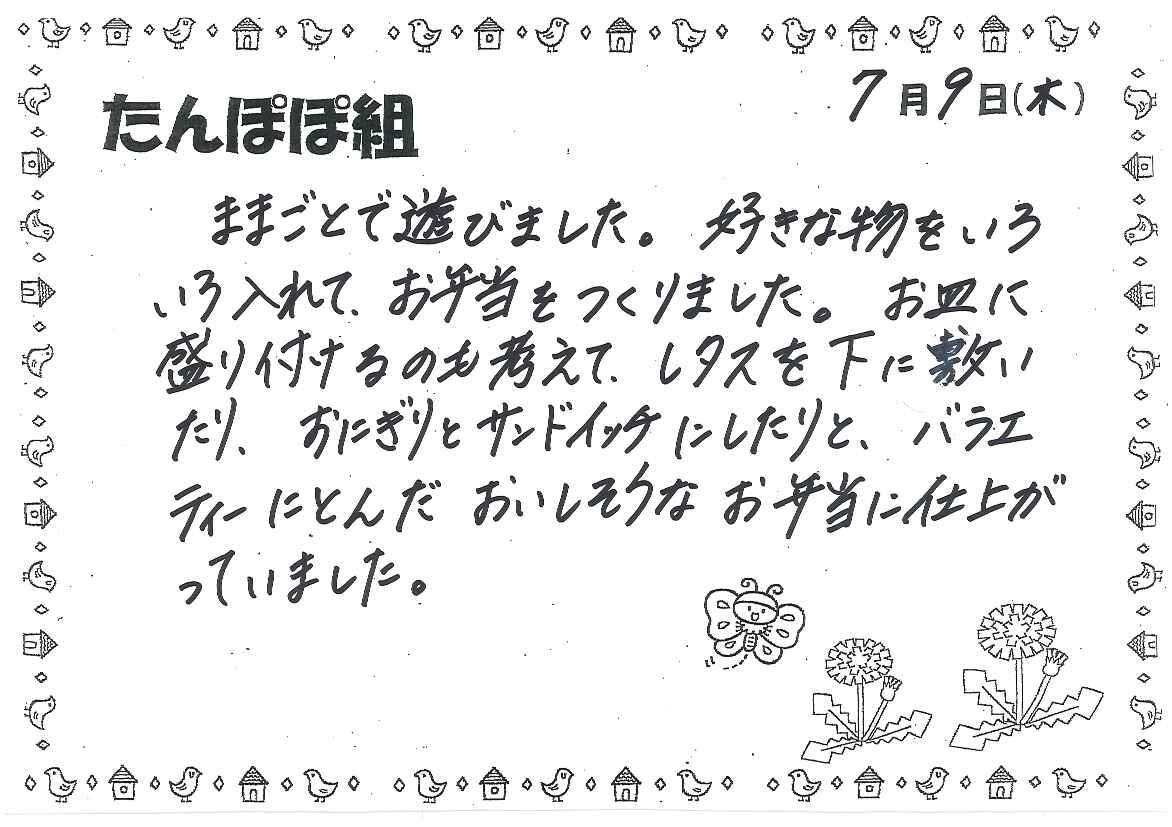 たんぽぽ組
7月9日(木)
ままごとで遊びました。好きな物をいろ
いろ入れて、お弁当をつくりました。お皿に
盛り付けるのも考えて、レタスを下に敷い
たり、おにぎりとサンドイッチにしたりと、バラエ
ティーにとんだおいしそうなお弁当に仕上が
っていました。